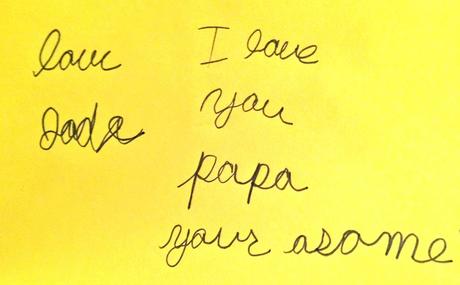 love
I love
you
papa
your asome